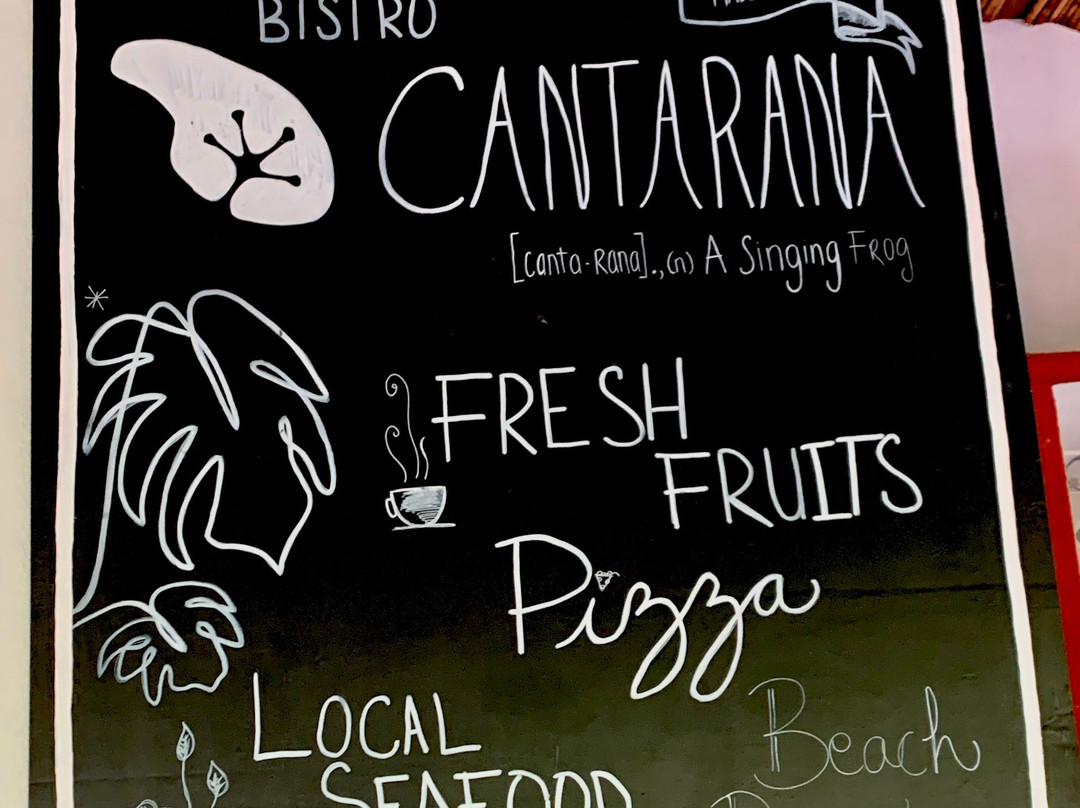 BISTRO
CANTARANA
[canta-Rana].,(n) A Singing Frog
FRESH
FRUITS
Pizza
LOCAL
SEAFOOD
Beach